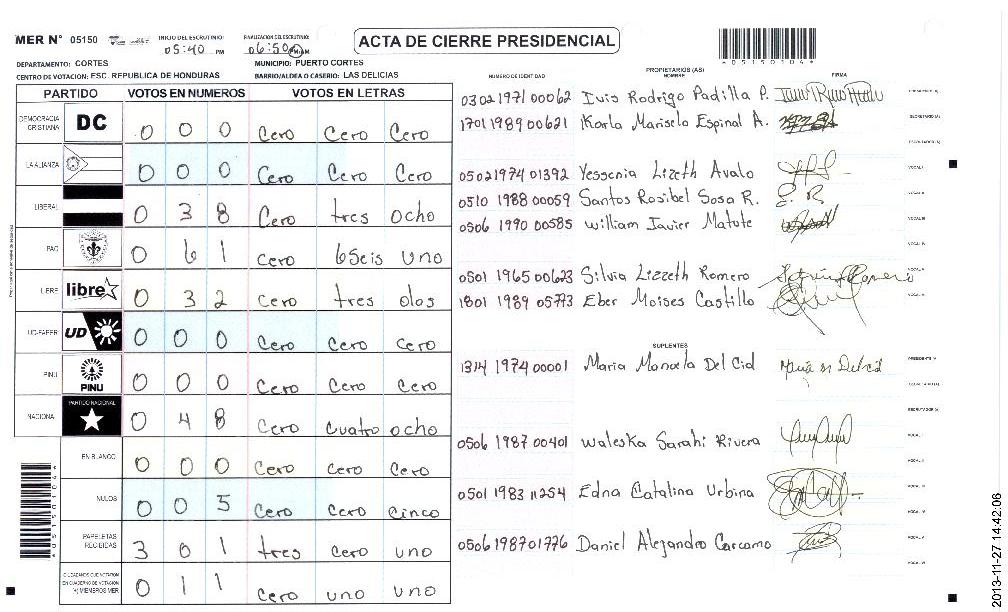 MER N° 05150
INICIO DEL ESCRUTINIO: 05:40 PM
FINALIZACION DEL ESCRUTINIO: 06:50 PM
ACTA DE CIERRE PRESIDENCIAL
*05150104*
DEPARTAMENTO: CORTES MUNICIPIO: PUERTO CORTES
CENTRO DE VOTACION: ESC. REPUBLICA DE HONDURAS BARRIO/ALDEA O CASERIO: LAS DELICIAS
PARTIDO VOTOS EN NUMEROS VOTOS EN LETRAS
DEMOCRACIA CRISTIANA DC 0 0 0 Cero Cero Cero
LA ALIANZA 0 0 0 Cero Cero Cero
LIBERAL 0 3 8 Cero tres ocho
PAC 0 6 1 cero 6Seis uno
LIBRE libre 0 3 2 cero tres dos
UD-FAPER UD 0 0 0 Cero Cero cero
PINU PINU 0 0 0 Cero Cero Cero
NACIONAL PARTIDO NACIONAL 0 4 8 Cero cuatro ocho
EN BLANCO 0 0 0 Cero Cero Cero
NULOS 0 0 5 Cero Cero Cinco
PAPELETAS RECIBIDAS 3 0 1 tres Cero uno
CIUDADANOS QUE VOTARON EN CUADERNO DE VOTACION Y MIEMBROS MER 0 1 1 Cero uno uno
NUMERO DE IDENTIDAD PROPIETARIOS (AS) NOMBRE FIRMA
0302 1971 00062 Luis Rodrigo Padilla P.
1701 1989 00621 Karla Marisela Espinal A.
0502 1974 01392 Yessenia Lizeth Avalo
0510 1988 00059 Santos Rosibel Sosa R.
0506 1990 00585 William Javier Matute
0501 1965 00623 Silvia Lizzeth Romero
1801 1989 05773 Eber Moises Castillo
SUPLENTES
1314 1974 00001 Maria Manuela Del Cid
0506 1987 00401 Waleska Sarahi Rivera
0501 1983 11254 Edna Catalina Urbina
0506 1987 01776 Daniel Alejandro Carcamo
*05150104*
2013-11-27 14:42:06